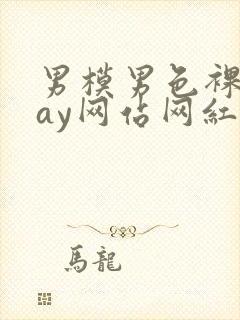 男模男色裸
ay网估网紅
馬龍